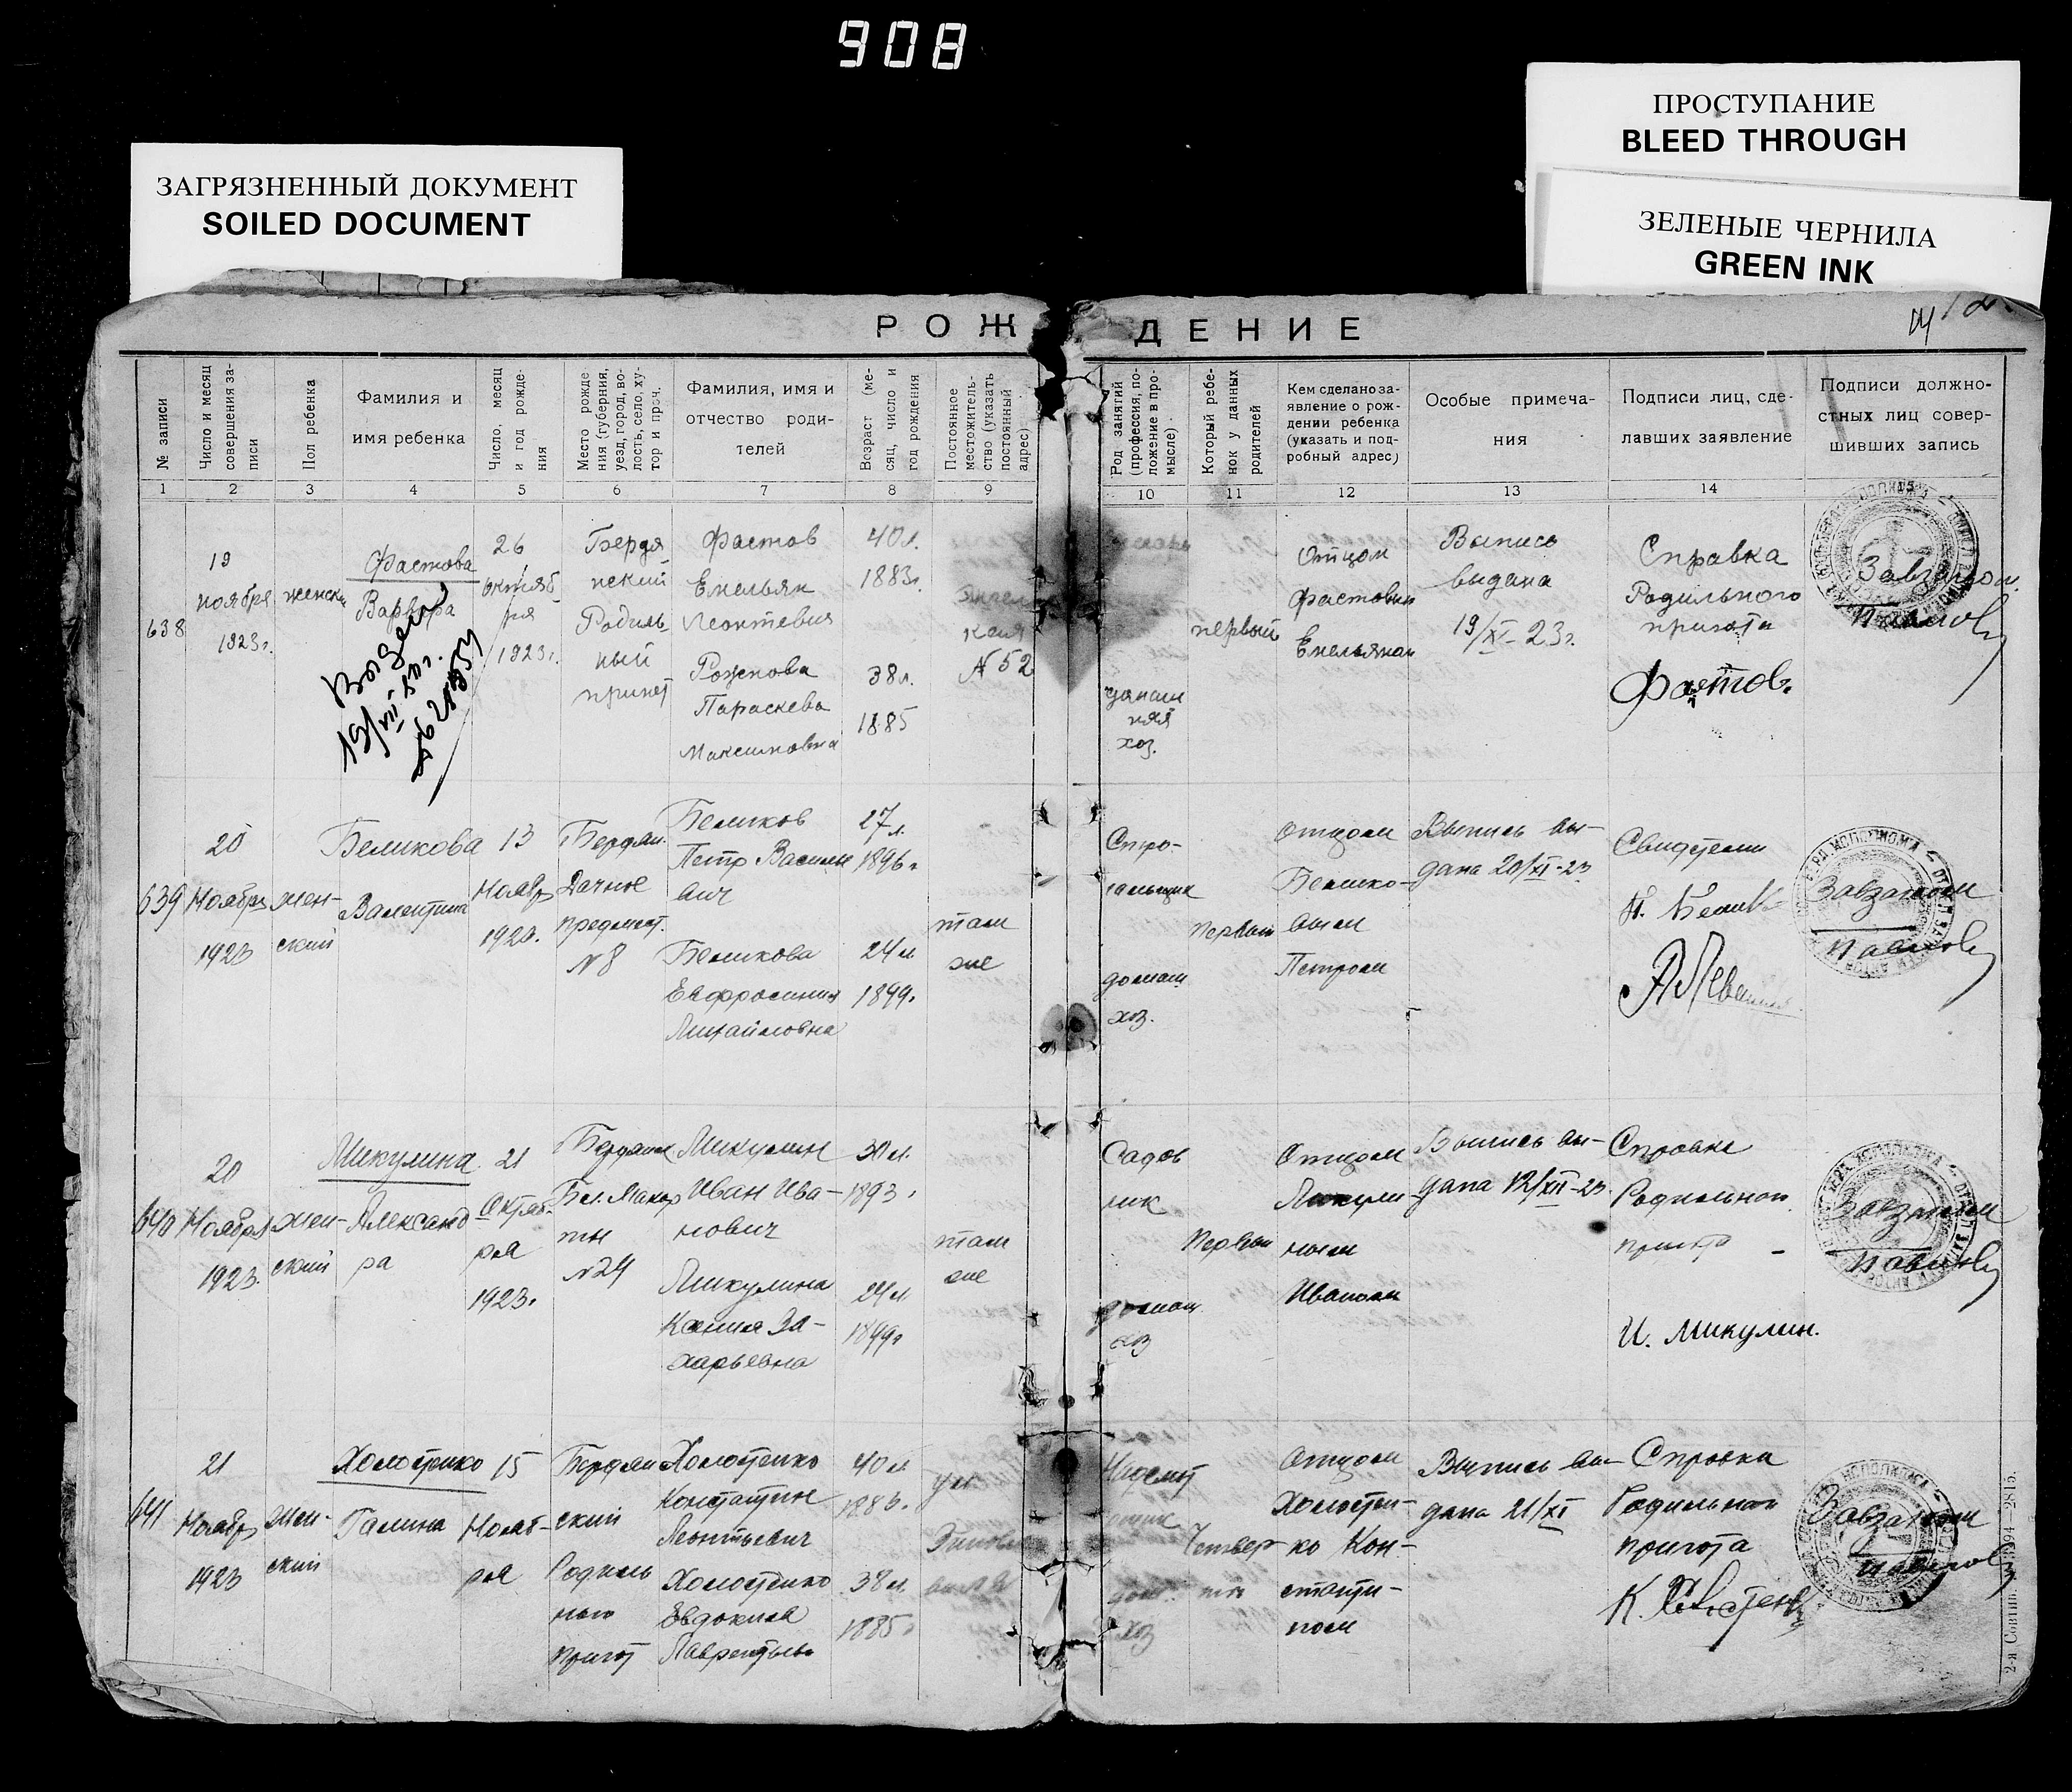 908
ПРОСТУПАНИЕ
BLEED THROUGH
ЗАГРЯЗНЕННЫЙ ДОКУМЕНТ
SOILED DOCUMENT
ЗЕЛЕНЫЕ ЧЕРНИЛА
GREEN INK
РОЖДЕНИЕ
№ записи
Число и месяц
совершения за-
писи
Пол ребенка
Фамилия и
имя ребенка
Число, месяц
и год рожде-
ния
Место рожде
ния (губерния,
уезд, город, во-
лость, село, ху-
тор и проч.
Фамилия, имя и
отчество роди-
телей
Возраст (ме-
сяц, число и
год рождения
Постоянное
местожитель-
ство (указать
постоянный
адрес)
Род занятий
(профессия, по-
ложение в про-
мысле)
Который ребе-
нок у данных
родителей
Кем сделано за-
явление о рож-
дении ребенка
(указать и под-
робный адрес)
Особые примеча-
ния
Подписи лиц, сде-
лавших заявление
Подписи должно-
стных лиц совер-
шивших запись
1 2 3 4 5 6 7 8 9 10 11 12 13 14 15
638
19
ноября
1923г.
женски
Фастова
Варвара
26
октяб
ря
1923г.
Бердя
нский
Родиль
ный
приют
Фастов
Емельян
Леонтевич
Рожнова
Параскева
Максимовна
40л.
1883г.
38л.
1885
№ 52
домаш
няя
хоз.
первый
Отцом
Фастовым
Емельяном
Выпись
выдана
19/XI-23г.
Справка
Родильного
приюта
Фастов.
Завзагсом
Павлов
639
20
Ноября
1923
жен-
ский
Беликова
Валентина
13
Ноябр
1923.
Бердян.
Дачное
предмест.
№8
Беликов
Петр Василь
евич
Беликова
Евфросиния
Михайловна
27л.
1896г
24л
1899.
там
же
домаш
хоз.
Первый
Отцом
Белико-
вым
Петром
Выпись вы-
дана 20/XI-23
Свидетели
Завзагсом
Павлов
640
20
Ноября
1923.
жен-
ский
Микулина
Александ
ра
21
Октяб-
ря
1923.
Бердянск
№24
Микулин
Иван Ива-
нович
Микулина
Ксения За-
харьевна
30л.
1893.
24л
1899г
там
же
Садов
ник
домаш
хоз
Первый
Отцом
Микули-
ным
Иваном
Выпись вы-
дана 12/XII-23
Справка
Родильного
приюта
И. Микулин.
Завзагсом
Павлов
641
21
Ноябр
1923
жен-
ский
Холостенко
Галина
15
Нояб-
ря
Бердян
ский
Родиль
ного
приют
Холостенко
Константин
Леонтьевич
Холостенко
Евдокия
Лаврентьев
40л
1883.
38л
1885г
ул
дом.
хоз
Четвер
тый
Отцом
Холостен-
ко Кон-
станти-
ном
Выпись вы-
дана 21/XI
Справка
Родильного
приюта
Завзагсом
Павлов